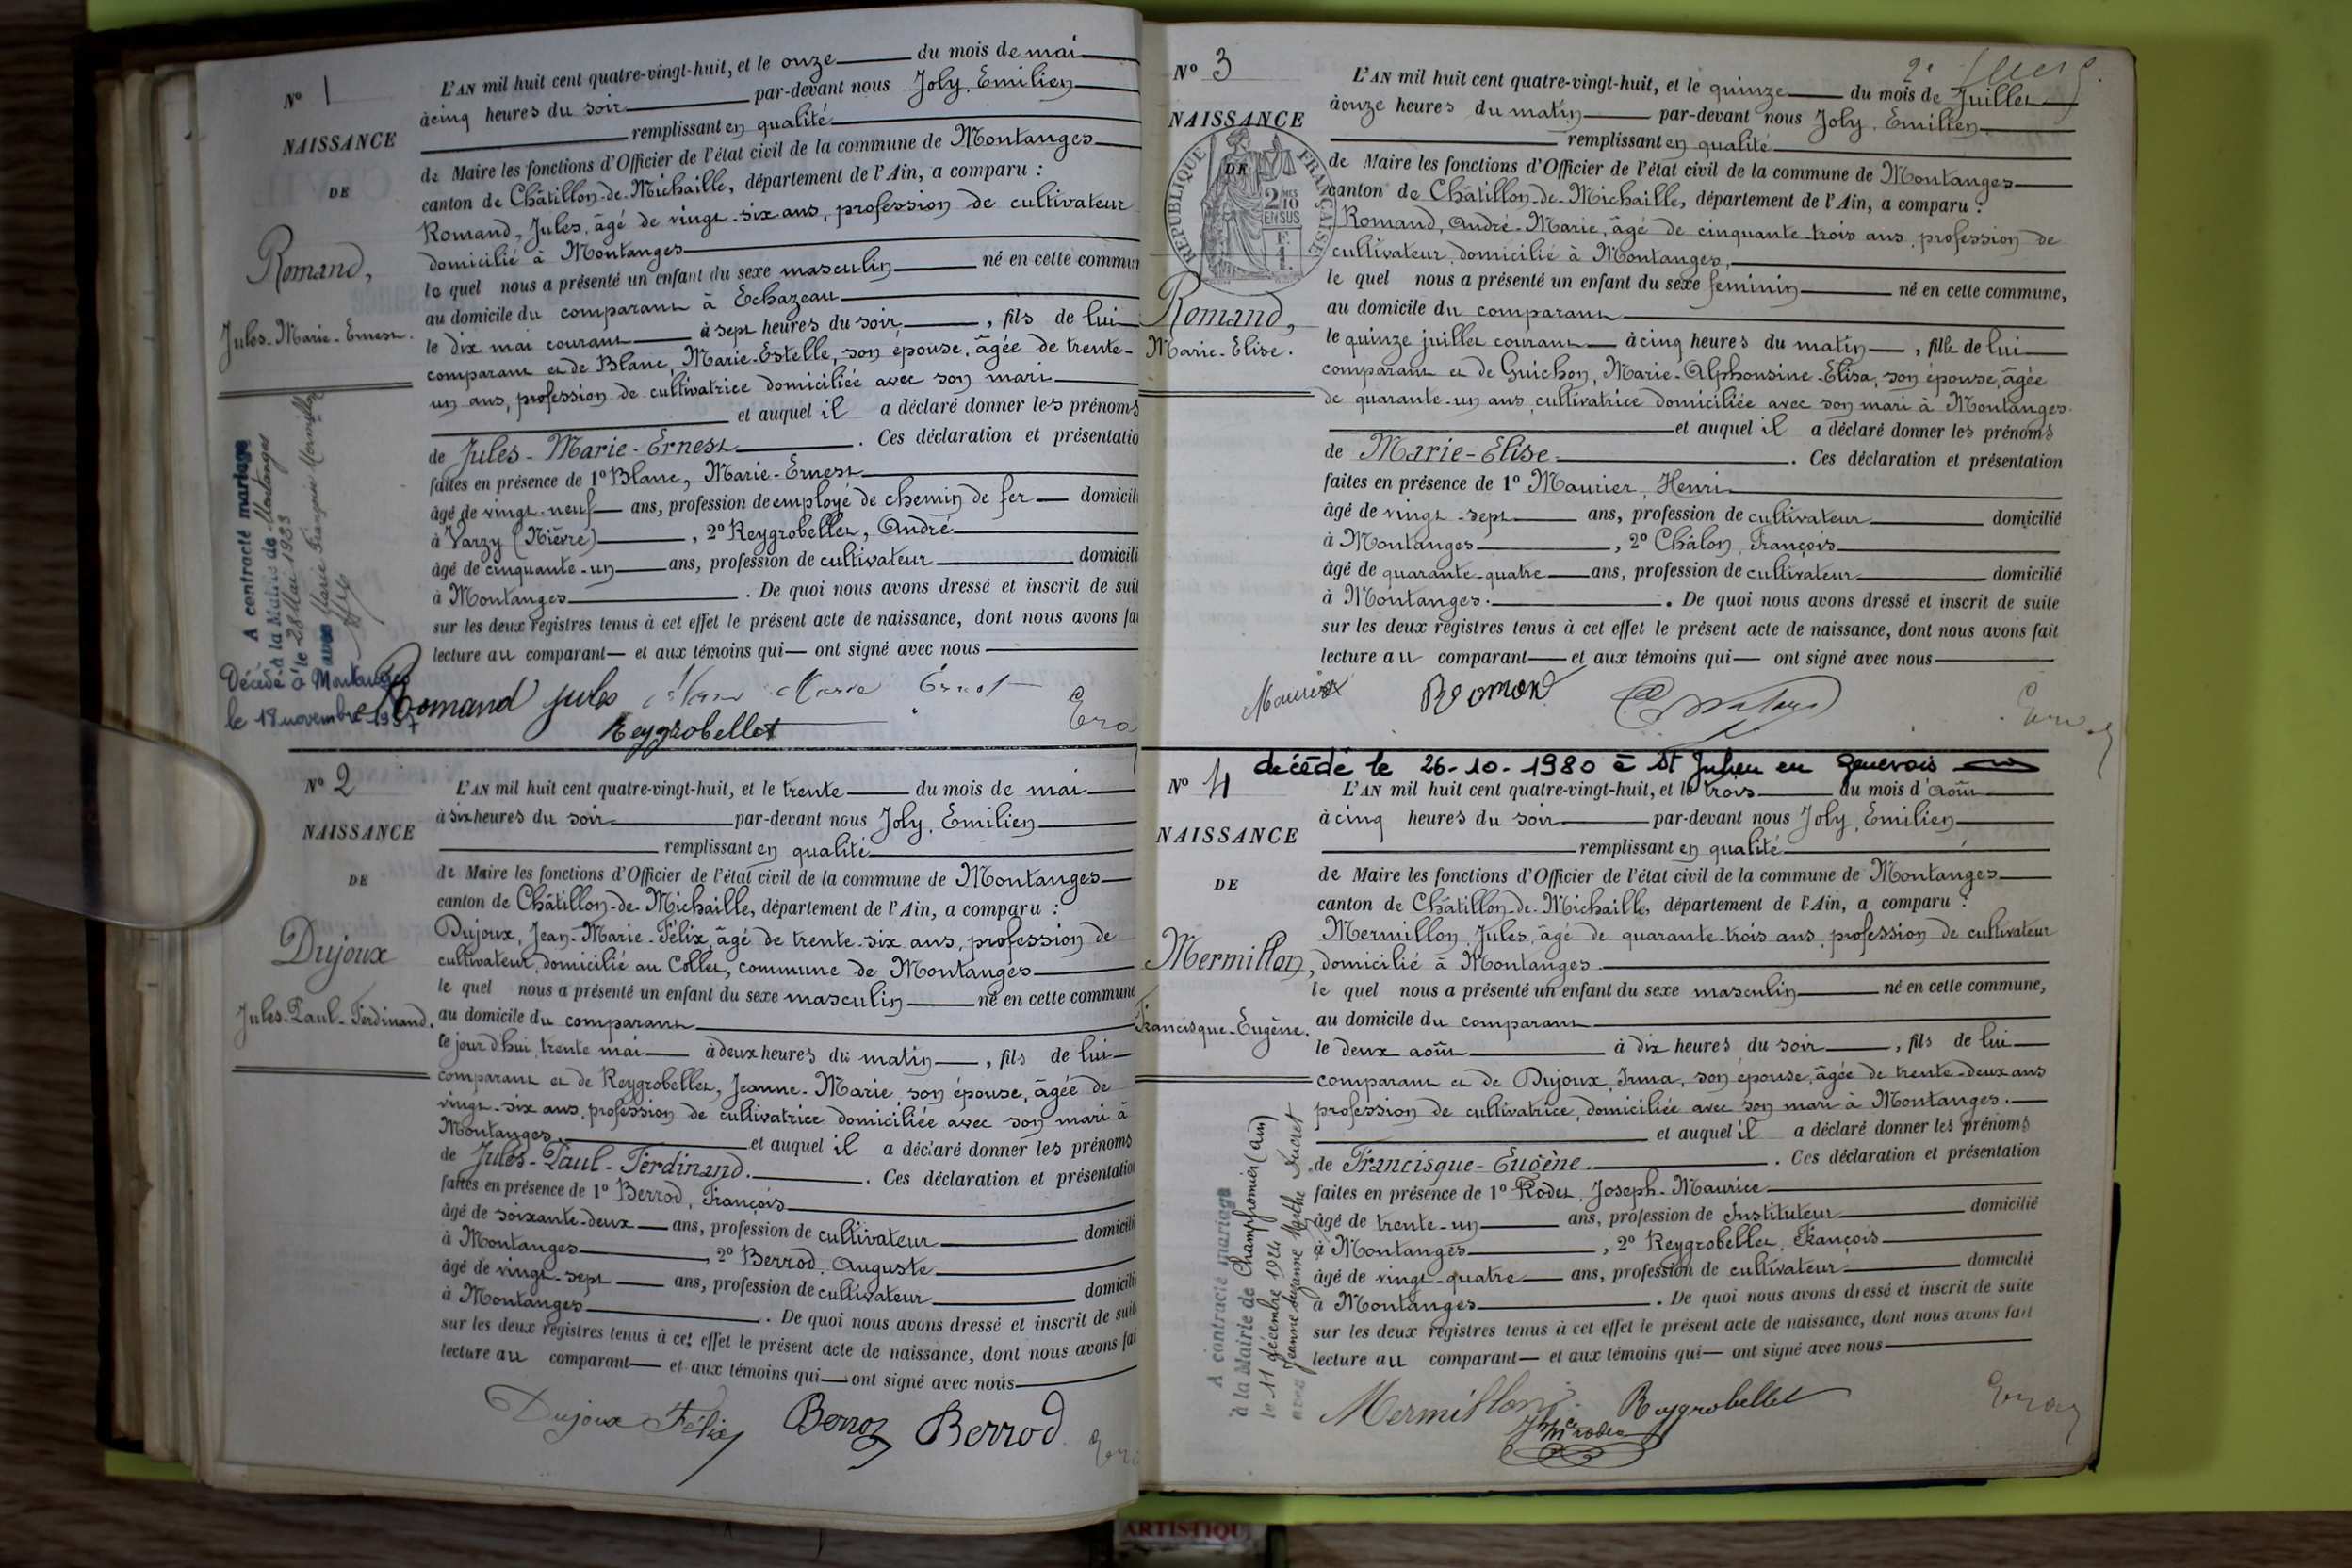 N° 1
NAISSANCE
DE
Romand,
Jules-Marie-Ernest.
A contracté mariage
à la Mairie de Montanges
le 28 Mai 1923
avec Marie Françoise
Décédé à Montanges
le 18 novembre 1957
L'AN mil huit cent quatre-vingt-huit, et le onze du mois de mai
à cinq heures du soir par-devant nous Joly, Emilien
remplissant en qualité
de Maire les fonctions d'Officier de l'état civil de la commune de Montanges
canton de Châtillon-de-Michaille, département de l'Ain, a comparu :
Romand, Jules, âgé de vingt-six ans, profession de cultivateur
domicilié à Montanges
le quel nous a présenté un enfant du sexe masculin né en cette commun
au domicile du comparant à Echazeau
le dix mai courant à sept heures du soir, fils de lui
comparant et de Blanc, Marie-Estelle, son épouse, âgée de trente-
un ans, profession de cultivatrice domiciliée avec son mari
et auquel il a déclaré donner les prénoms
de Jules-Marie-Ernest. Ces déclaration et présentatio
faites en présence de 1° Blanc, Marie-Ernest
âgé de vingt-neuf ans, profession de employé de chemin de fer domicili
à Varzy (Nièvre), 2° Reygrobellet, André
âgé de cinquante-un ans, profession de cultivateur domicili
à Montanges. De quoi nous avons dressé et inscrit de suit
sur les deux registres tenus à cet effet le présent acte de naissance, dont nous avons fai
lecture au comparant et aux témoins qui ont signé avec nous
Romand jules Marie Ernest
Reygrobellet
N° 2
NAISSANCE
DE
Dujoux
Jules-Paul-Ferdinand.
L'AN mil huit cent quatre-vingt-huit, et le trente du mois de mai
à six heures du soir par-devant nous Joly, Emilien
remplissant en qualité
de Maire les fonctions d'Officier de l'état civil de la commune de Montanges
canton de Châtillon-de-Michaille, département de l'Ain, a comparu :
Dujoux, Jean-Marie-Félix, âgé de trente-six ans, profession de
cultivateur, domicilié au Collet, commune de Montanges
le quel nous a présenté un enfant du sexe masculin né en cette commune
au domicile du comparant
le jour d'hui trente mai à deux heures du matin, fils de lui
comparant et de Reygrobellet, Jeanne-Marie, son épouse, âgée de
vingt-six ans, profession de cultivatrice domiciliée avec son mari à
Montanges et auquel il a déclaré donner les prénoms
de Jules-Paul-Ferdinand. Ces déclaration et présentation
faites en présence de 1° Berrod, François
âgé de soixante-deux ans, profession de cultivateur domicilié
à Montanges 2° Berrod, Auguste
âgé de vingt-sept ans, profession de cultivateur domicilié
à Montanges. De quoi nous avons dressé et inscrit de suite
sur les deux registres tenus à cet effet le présent acte de naissance, dont nous avons fai
lecture au comparant et aux témoins qui ont signé avec nous
Dujoux Félix Berrod Berrod
2e
N° 3
NAISSANCE
DE
RÉPUBLIQUE FRANÇAISE
2/10 EN SUS
Romand,
Marie-Elise.
L'AN mil huit cent quatre-vingt-huit, et le quinze du mois de Juillet
à onze heures du matin par-devant nous Joly, Emilien
remplissant en qualité
de Maire les fonctions d'Officier de l'état civil de la commune de Montanges
canton de Châtillon-de-Michaille, département de l'Ain, a comparu :
Romand, André-Marie, âgé de cinquante-trois ans, profession de
cultivateur, domicilié à Montanges,
le quel nous a présenté un enfant du sexe feminin né en cette commune,
au domicile du comparant
le quinze juillet courant à cinq heures du matin, fille de lui
comparant et de Guichon, Marie-Alphonsine-Elisa, son épouse, âgée
de quarante-un ans, cultivatrice domiciliée avec son mari à Montanges.
et auquel il a déclaré donner les prénoms
de Marie-Elise. Ces déclaration et présentation
faites en présence de 1° Maurier, Henri
âgé de vingt-sept ans, profession de cultivateur domicilié
à Montanges, 2° Châlon, François
âgé de quarante-quatre ans, profession de cultivateur domicilié
à Montanges. De quoi nous avons dressé et inscrit de suite
sur les deux registres tenus à cet effet le présent acte de naissance, dont nous avons fait
lecture au comparant et aux témoins qui ont signé avec nous
Maurier Romand
décédé le 26-10-1980 à St Julien en Genevois
N° 4
NAISSANCE
DE
Mermillon,
Francisque-Eugène.
A contracté mariage
à la Mairie de Champfromier (Ain)
le 11 décembre 1924
avec Jeanne Suzanne Marthe Ducret
L'AN mil huit cent quatre-vingt-huit, et le trois du mois d'août
à cinq heures du soir par-devant nous Joly, Emilien
remplissant en qualité
de Maire les fonctions d'Officier de l'état civil de la commune de Montanges
canton de Châtillon-de-Michaille, département de l'Ain, a comparu :
Mermillon, Jules, âgé de quarante-trois ans, profession de cultivateur
domicilié à Montanges
le quel nous a présenté un enfant du sexe masculin né en cette commune,
au domicile du comparant
le deux août à dix heures du soir, fils de lui
comparant et de Dujoux, Irma, son épouse, âgée de trente-deux ans
profession de cultivatrice, domiciliée avec son mari à Montanges.
et auquel il a déclaré donner les prénoms
de Francisque-Eugène. Ces déclaration et présentation
faites en présence de 1° Rodet, Joseph-Maurice
âgé de trente-un ans, profession de Instituteur domicilié
à Montanges, 2° Reygrobellet, François
âgé de vingt-quatre ans, profession de cultivateur domicilié
à Montanges. De quoi nous avons dressé et inscrit de suite
sur les deux registres tenus à cet effet le présent acte de naissance, dont nous avons fait
lecture au comparant et aux témoins qui ont signé avec nous
Mermillon Reygrobellet
ARTISTIQU